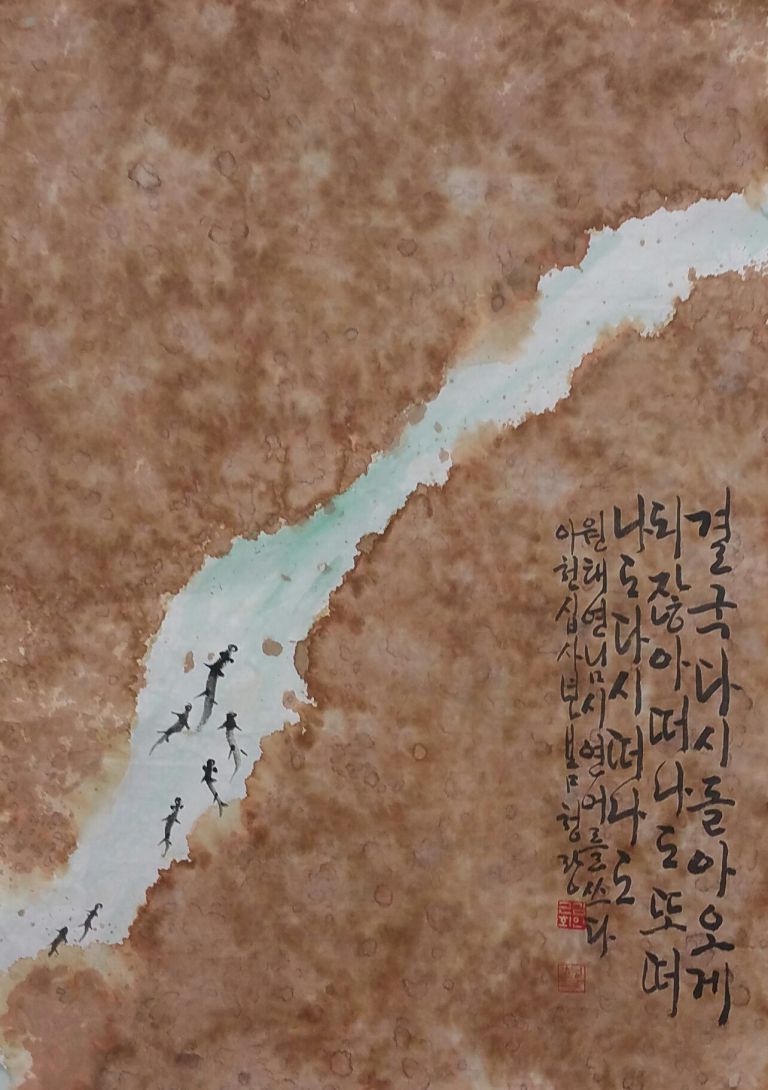 결국다시돌아오게
되잖아떠나도또떠
나도다시떠나도
원태연님시연어를쓰다
이천십사년봄